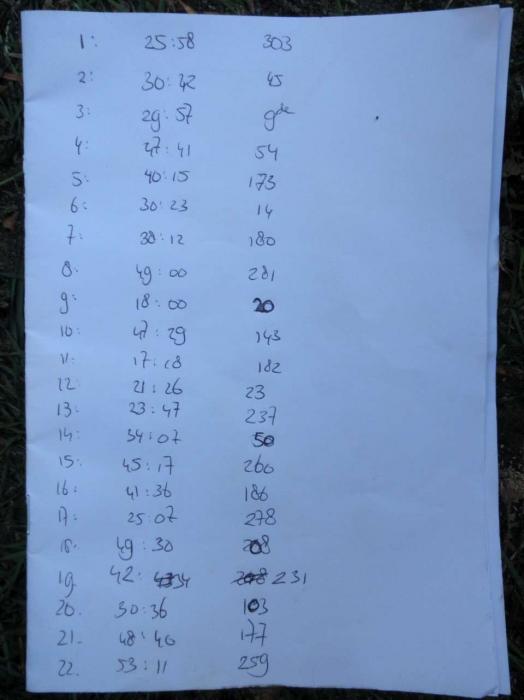 1: 25:58 303
2: 30:42 45
3: 29:57
4: 47:41 54
5: 40:15 173
6: 30:23 14
7: 38:12 180
8: 49:00 281
9: 18:00 20
10: 47:29 143
11: 17:28 182
12: 21:26 23
13: 23:47 237
14: 34:07 50
15: 45:17 260
16: 41:36 186
17: 25:07 278
18. 49:30
19 42: 231
20. 50:36 103
21. 48:40 177
22. 53:11 259